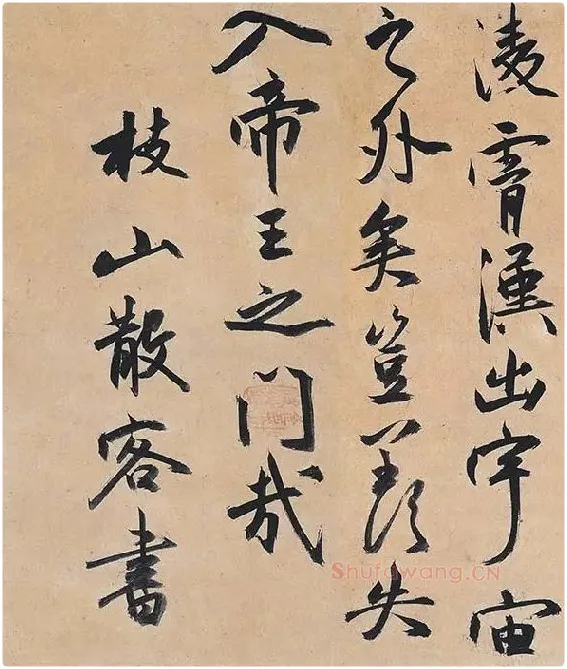 淩霄漢出宇宙
之外矣豈羨夫
入帝王之門哉
枝山散客書
Shufawang.CN